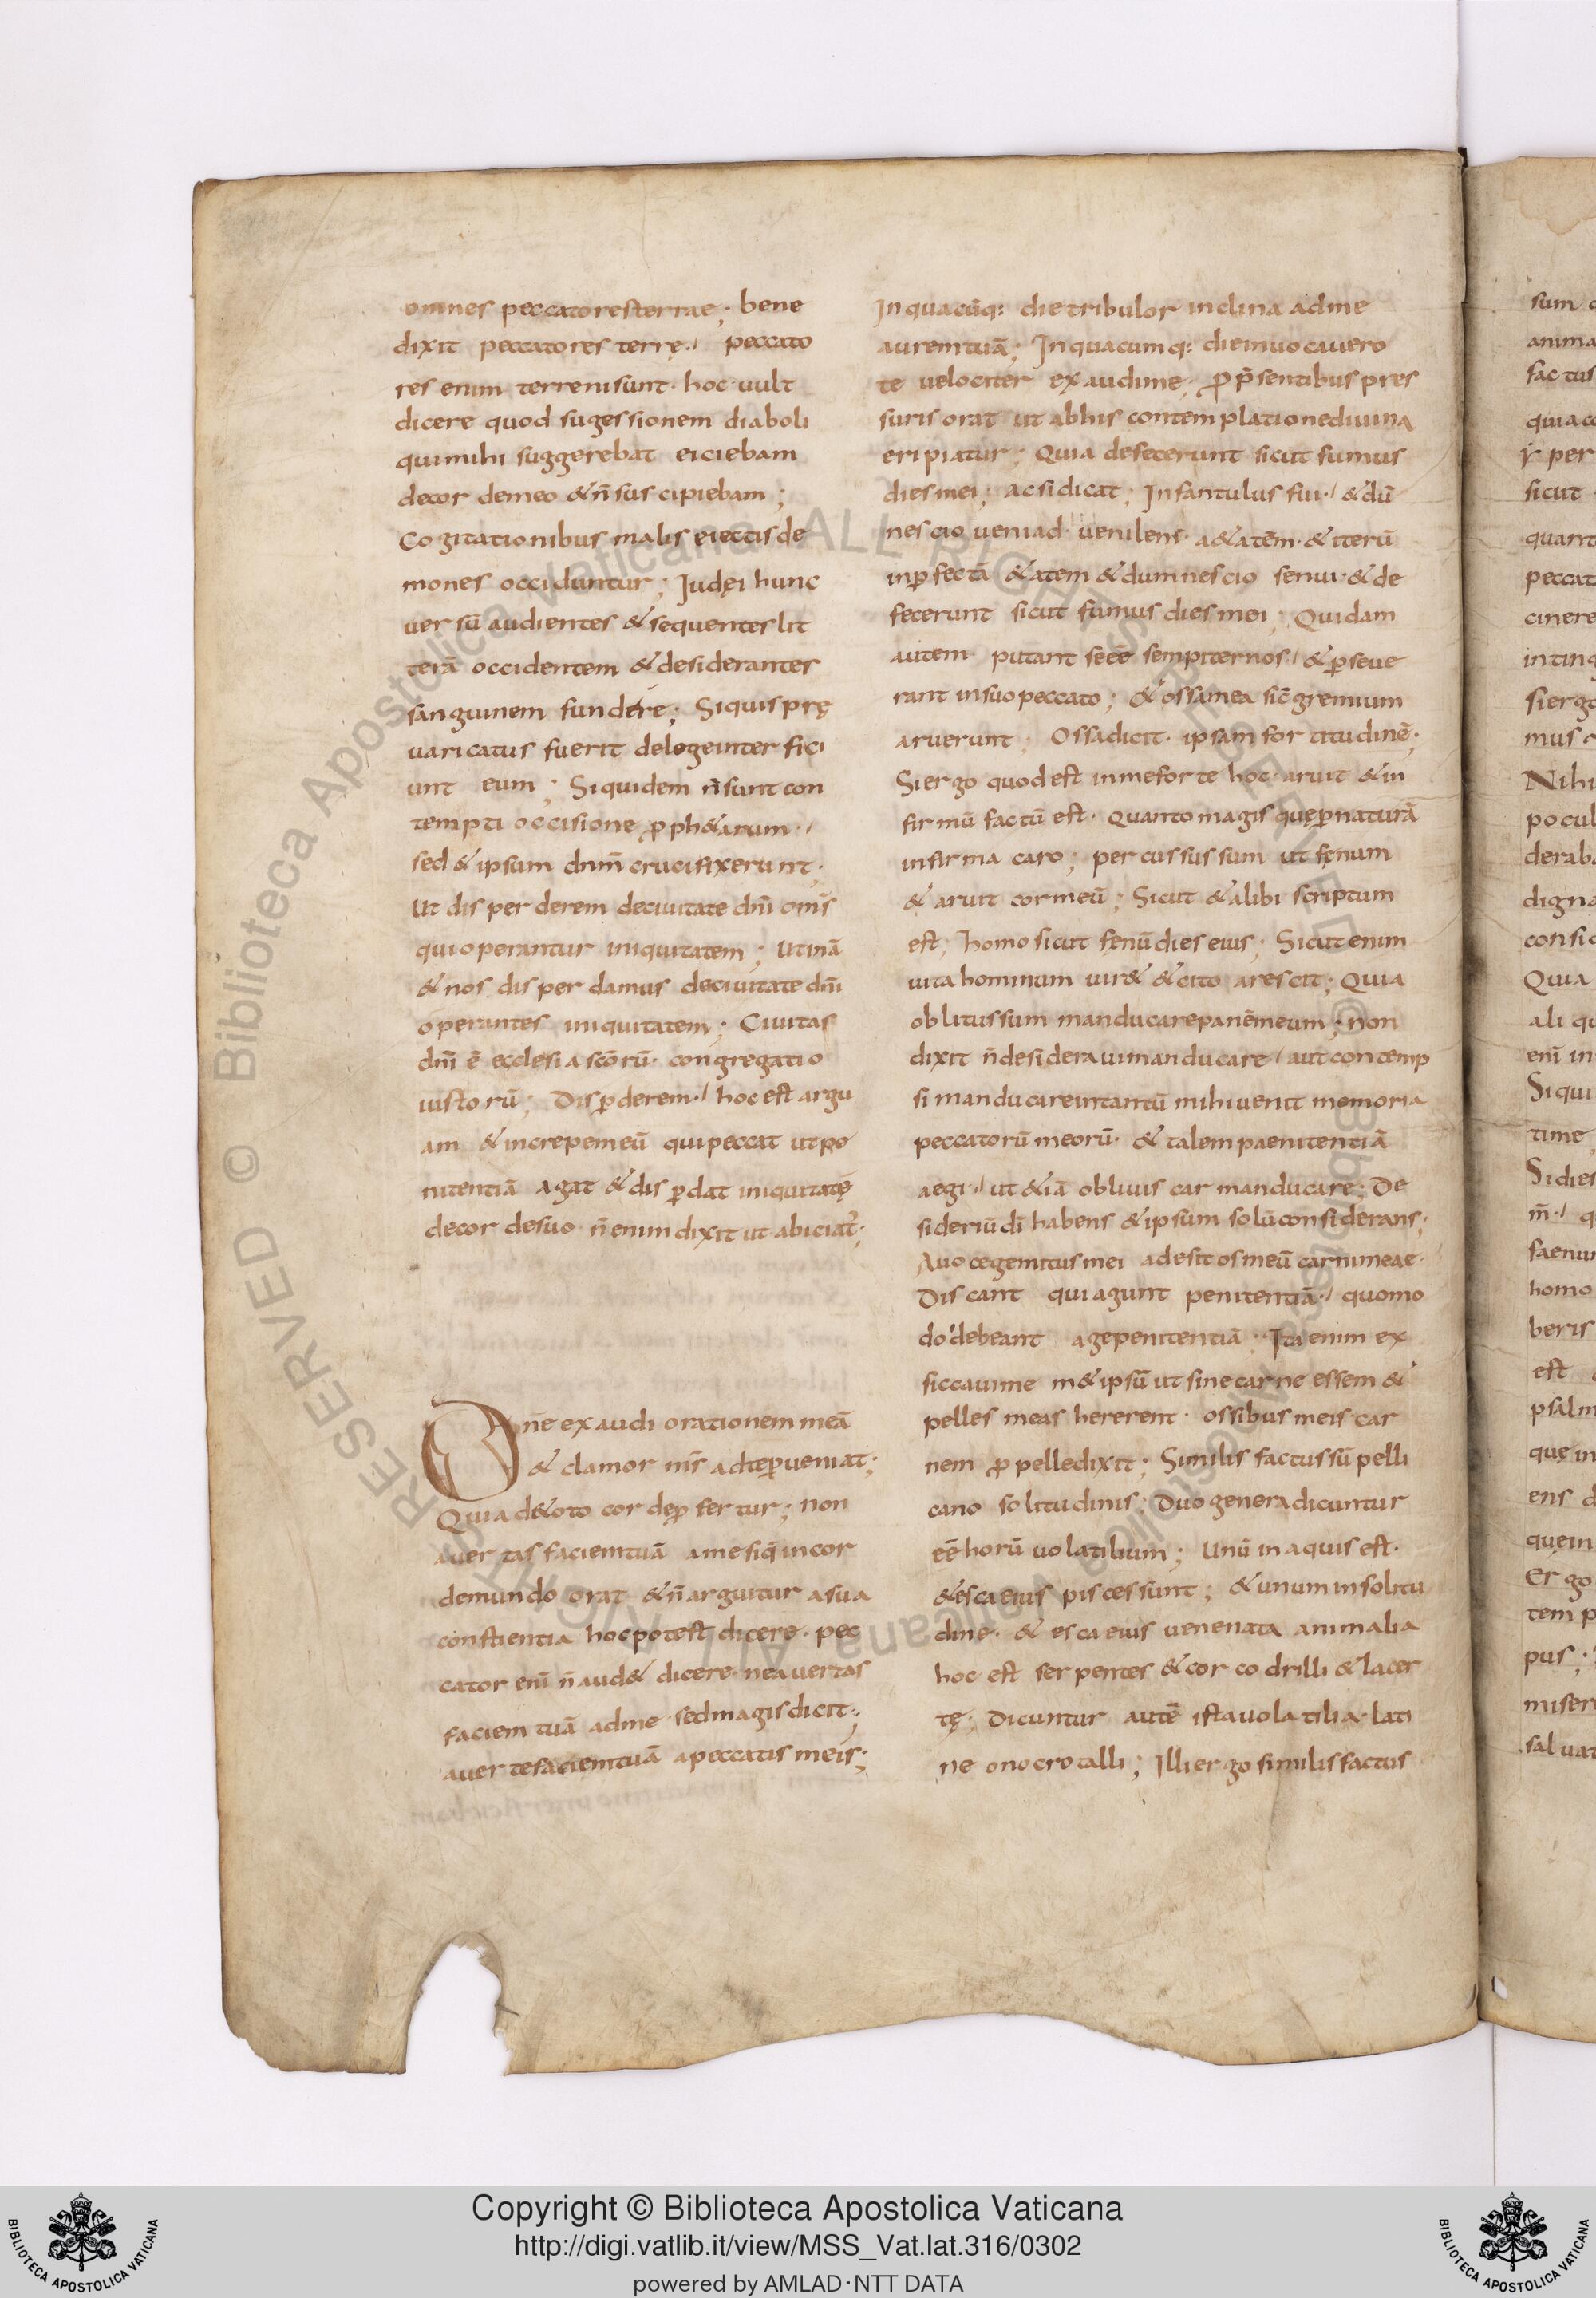 omnes peccatores terrae; bene
dixit peccatores terrę·/ peccato
res enim terreni sunt· hoc uult
dicere quod sugessionem diaboli
qui mihi suggerebat eiciebam
de cor de meo & n̄ suscipiebam;
Cogitationibus malis eiectis de
mones occiduntur; Judęi hunc
uersū audientes & sequentes lit
terā occidentem & desiderantes
sanguinem fundere; Si quis prę
uaricatus fuerit de lege interfici
unt eum; Siquidem n̄ sunt con
tempti occisione, ꝓph&arum·/
sed & ipsum dnm̄ crucifixerunt;
Ut disperderem de ciuitate dnī omīs
qui operantur iniquitatem; Utinā
& nos disperdamus de ciuitate dnī
operantes iniquitatem; Ciuitas
dnī ē ecclesia scōrū· congregatio
iustorū; Disꝑderem·/ hoc est argu
am & increpem eū qui peccat ut pe
nitentiā agat & disꝑdat iniquitatē
de cor de suo· n̄ enim dixit ut abiciat᷑;
Dn̄e exaudi orationem meā
& clamor mīs ad te ꝑueniat;
Quia de toto corde ꝓfertur; non
auertas faciem tuā a me si q̄ in cor
de mundo orat & n̄ arguitur a sua
conscientia hoc potest dicere· pec
cator enī n̄ aud& dicere· ne auertas
faciem tuā a d me sed magis dicit;
auerte faciem tuā a peccatis meis;
In quacūq: die tribulor inclina ad me
aurem tuā; In quacumq: die inuocauero
te uelociter exaudi me; ꝓ p̄sentibus pres
suris orat ut ab his contemplatione diuina
eripiatur; Quia defecerunt sicut fumus
dies mei; ac si dicat; Infantulus fui·/ & dū
nescio ueni ad uenilens a&atēm· & iterū
inꝑfectā &atem & dum nescio senui· & de
fecerunt sicut fumus dies mei; Quidam
autem putant se eē sempiternos·/ & ꝑseue
rant in suo peccato; & ossa mea sic̄ gremium
aruerunt; Ossa dicit· ipsam fortitudinē;
Si ergo quod est in me forte hoc aruit & in
firmū factū est· quanto magis quę ꝑ naturā
infirma caro; percussus sum ut fęnum
& aruit cor meū; Sicut & alibi scriptum
est; homo sicut fęnū dies eius; Sicut enim
uita hominum uir& & cito arescit; Quia
oblitus sum manducare panē meum; non
dixit n̄ desideraui manducare/ aut contemp
si manducare in tantū mihi uenit memoria
peccatorū meorū· & talem paenitentiā
aegi·/ ut &iā obliuiscar manducare; De
sideriū dī habens & ipsum solū considerans;
A uoce gemitus mei adesit os meū carni meae·
Discant qui agunt penitentiā·/ quomo
do debeant agepenitentiā· Ita enim ex
siccaui me m& ipsū ut sine carne essem &
pelles meas hererent· ossibus meis· car
nem ꝓ pelle dixit; Similis factus sū pelli
cano solitudinis; Duo genera dicuntur
eē horū uolatilium; Unū in aquis est·
& esca eius pisces sunt; & unum in solitu
dine· & esca eius uenenata animalia
hoc est serpentes & corcodrilli & lacer
tę; Dicuntur autē ista uolatilia· lati
ne onocrotalli; Illi ergo similis factus
Copyright © Biblioteca Apostolica Vaticana
http://digi.vatlib.it/view/MSS_Vat.lat.316/0302
powered by AMLAD·NTT DATA